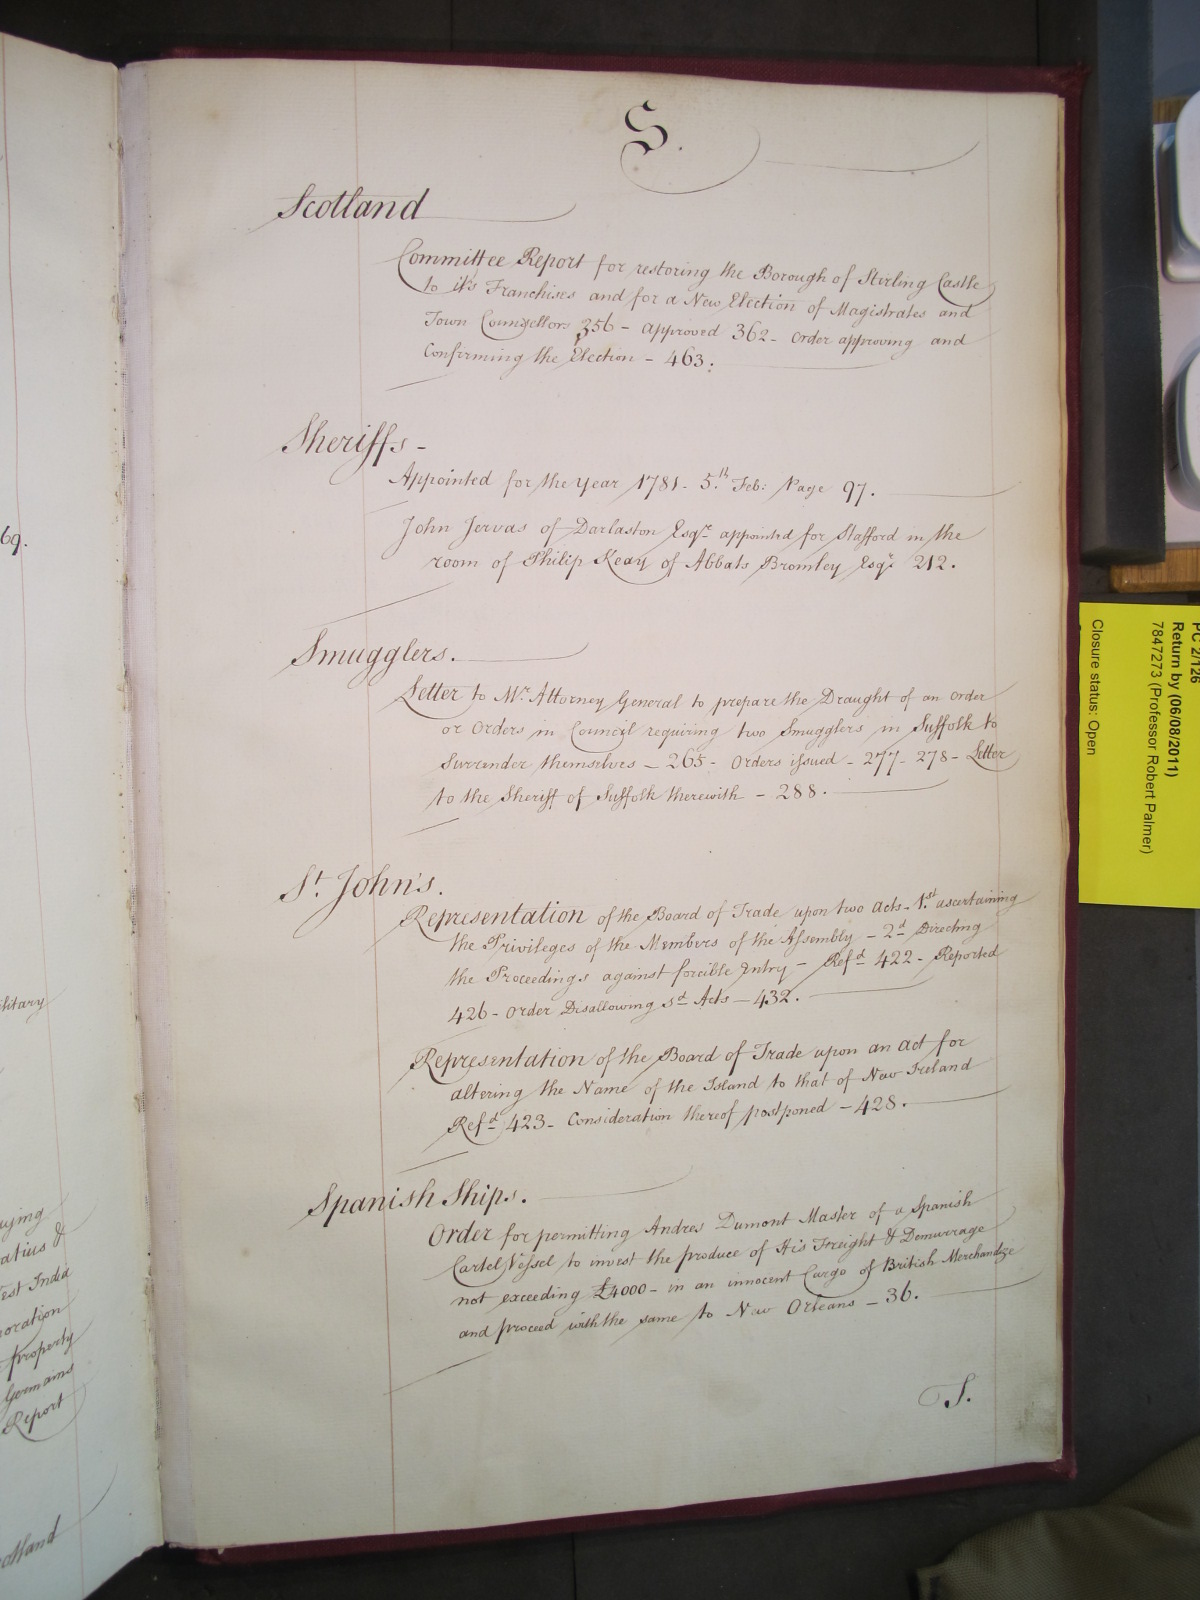 69.
litary
aying
atius &
est India
noration
Property
Germains
Report
Scotland
S.
Scotland
Committee Report for restoring the Borough of Stirling Castle
to it's Franchises and for a New Election of Magistrates and
Town Counsellors 356 - approved 362 - order approving and
Confirming the Election - 463.
Sheriffs -
Appointed for the Year 1781 - 5.th Feb: Page 97.
John Jervas of Darlaston Esqr. appointed for Stafford in the
room of Philip Keay of Abbats Bromley Esqr. 212.
Smugglers.
Letter to Mr. Attorney General to prepare the Draught of an order
or Orders in Council requiring two Smugglers in Suffolk to
Surrender themselves - 265 - Orders issued - 277 - 278 - Letter
to the Sheriff of Suffolk therewith - 288.
St. John's.
Representation of the Board of Trade upon two Acts - 1.st ascertaining
the Privileges of the Members of the Assembly - 2d. Directing
the Proceedings against forcible Entry - Refd. 422 - Reported
426 - Order Disallowing sd. Acts - 432.
Representation of the Board of Trade upon an Act for
altering the Name of the Island to that of New Ireland
Refd. 423 - Consideration thereof postponed - 428.
Spanish Ships.
Order for permitting Andres Dumont Master of a Spanish
Cartel Vessel to invest the produce of His Freight & Demurrage
not exceeding £4000 - in an innocent Cargo of British Merchandze
and proceed with the same to New Orleans - 36.
T.
PC 2/126
Return by (06/08/2011)
7847273 (Professor Robert Palmer)
Closure status: Open